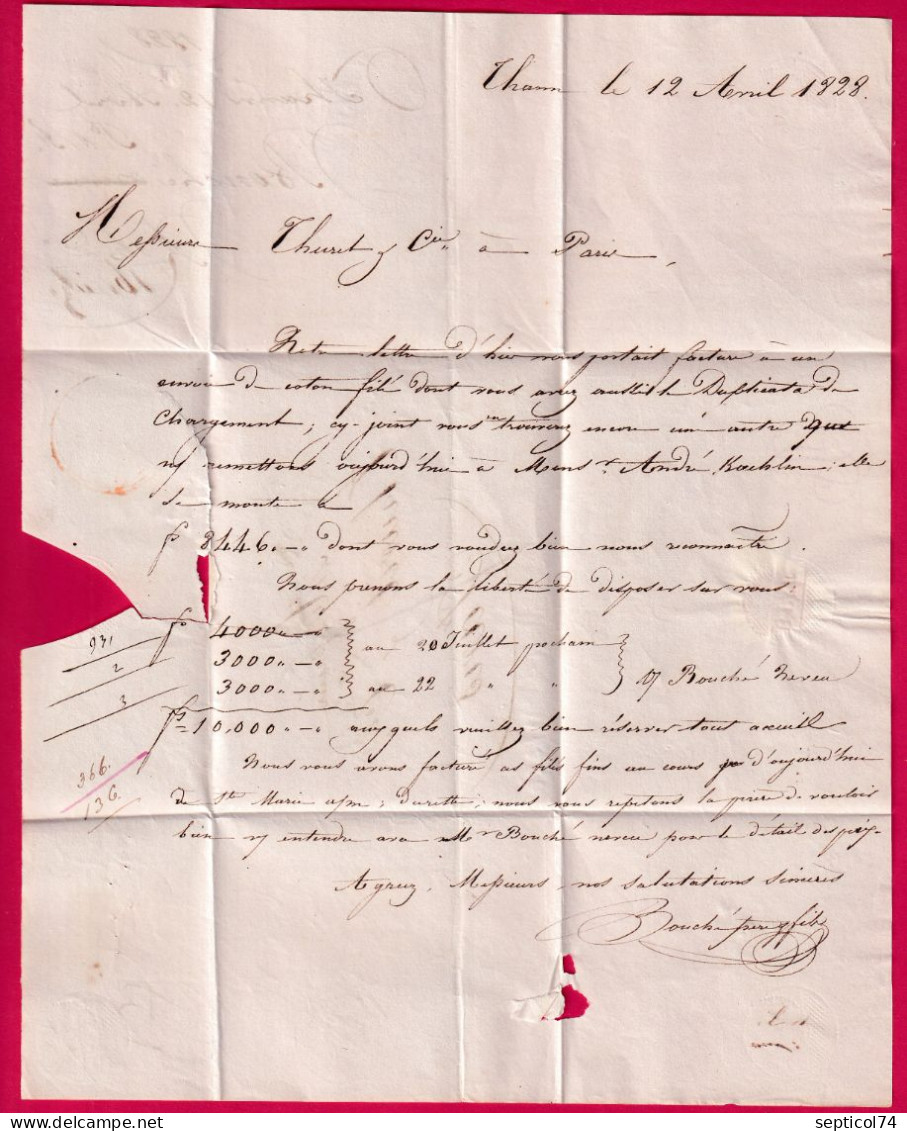 Thann le 12 Avril 1828.
Messieurs Thuret & Cie à Paris,
Notre lettre d'hier vous portait facture à un
envoi de coton filé dont vous avez aussi le Duplicata de
chargement; cy-joint vous en trouverez encore un autre que
nous remettons aujourd'hui à Mons.r André Koechlin, elle
se monte à
f 8446.-" dont vous voudrez bien nous reconnaitre.
Nous prenons la liberté de disposer sur vous
f 4000"-"
3000"-" au 20 Juillet prochain
3000"-" au 22 " " o/ Bouché Neveu
f 10,000"-" auxquels veuillez bien réserver tout accueill
Nous vous avons facturé ces filés fins au cours d'aujourd'hui
de Ste Marie nous vous repetons la prière de vouloir
bien entendre avec Mr Bouché neveu pour le détail des prix.
Agréez, Messieurs, nos salutations sincères
Bouché père & fils
931
2
3
366.
136.
septicol74